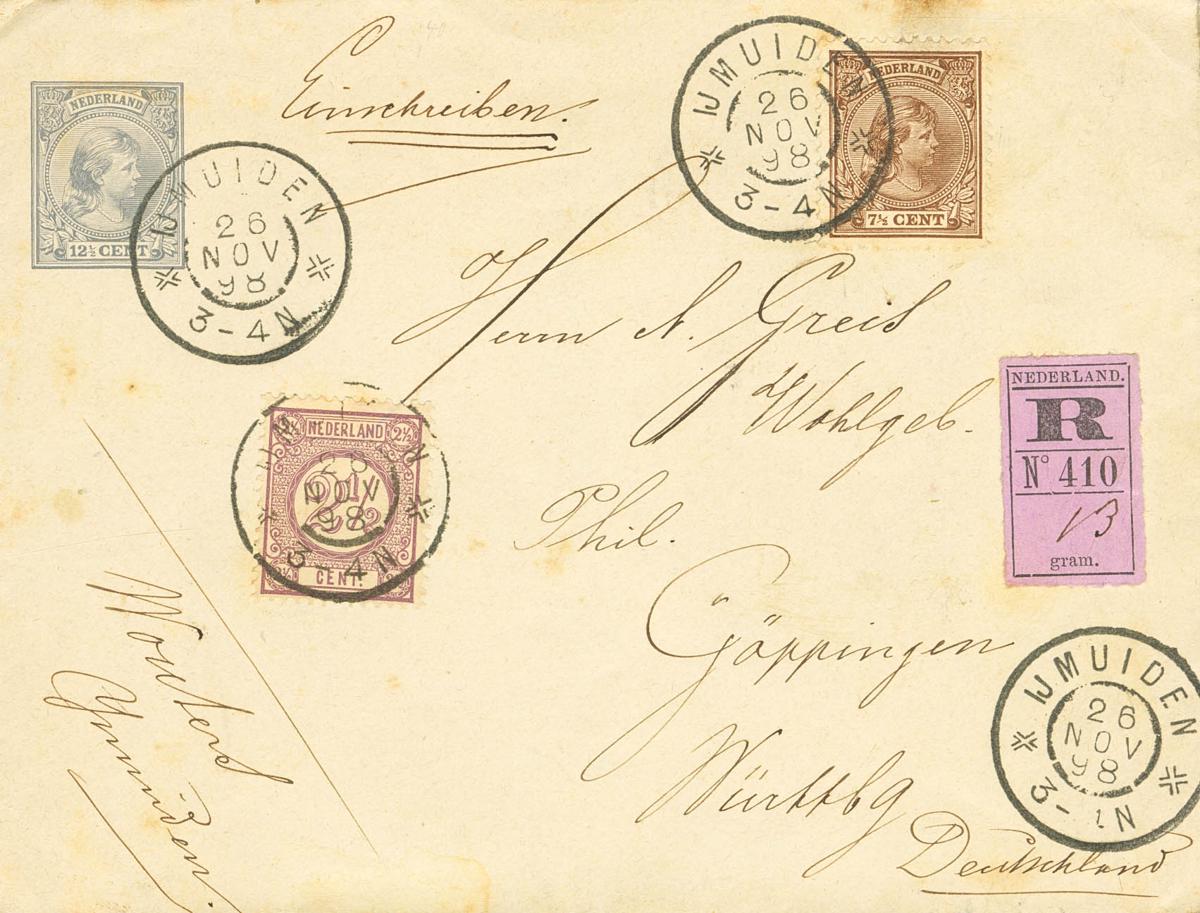 Einschreiben.
NEDERLAND
12½ CENT
IJMUIDEN
26
NOV
98
3-4N
IJMUIDEN
26
NOV
98
3-4N
NEDERLAND
7½ CENT
Herrn A. Greis
Wohlgeb.
Phil.
Göppingen
Württbg
Deutschland
2½ NEDERLAND 2½
2½
CENT.
26
NOV
98
3-4N
NEDERLAND.
R
No 410
13
gram.
IJMUIDEN
26
NOV
98
3-1N
Wouters
Ymuiden.